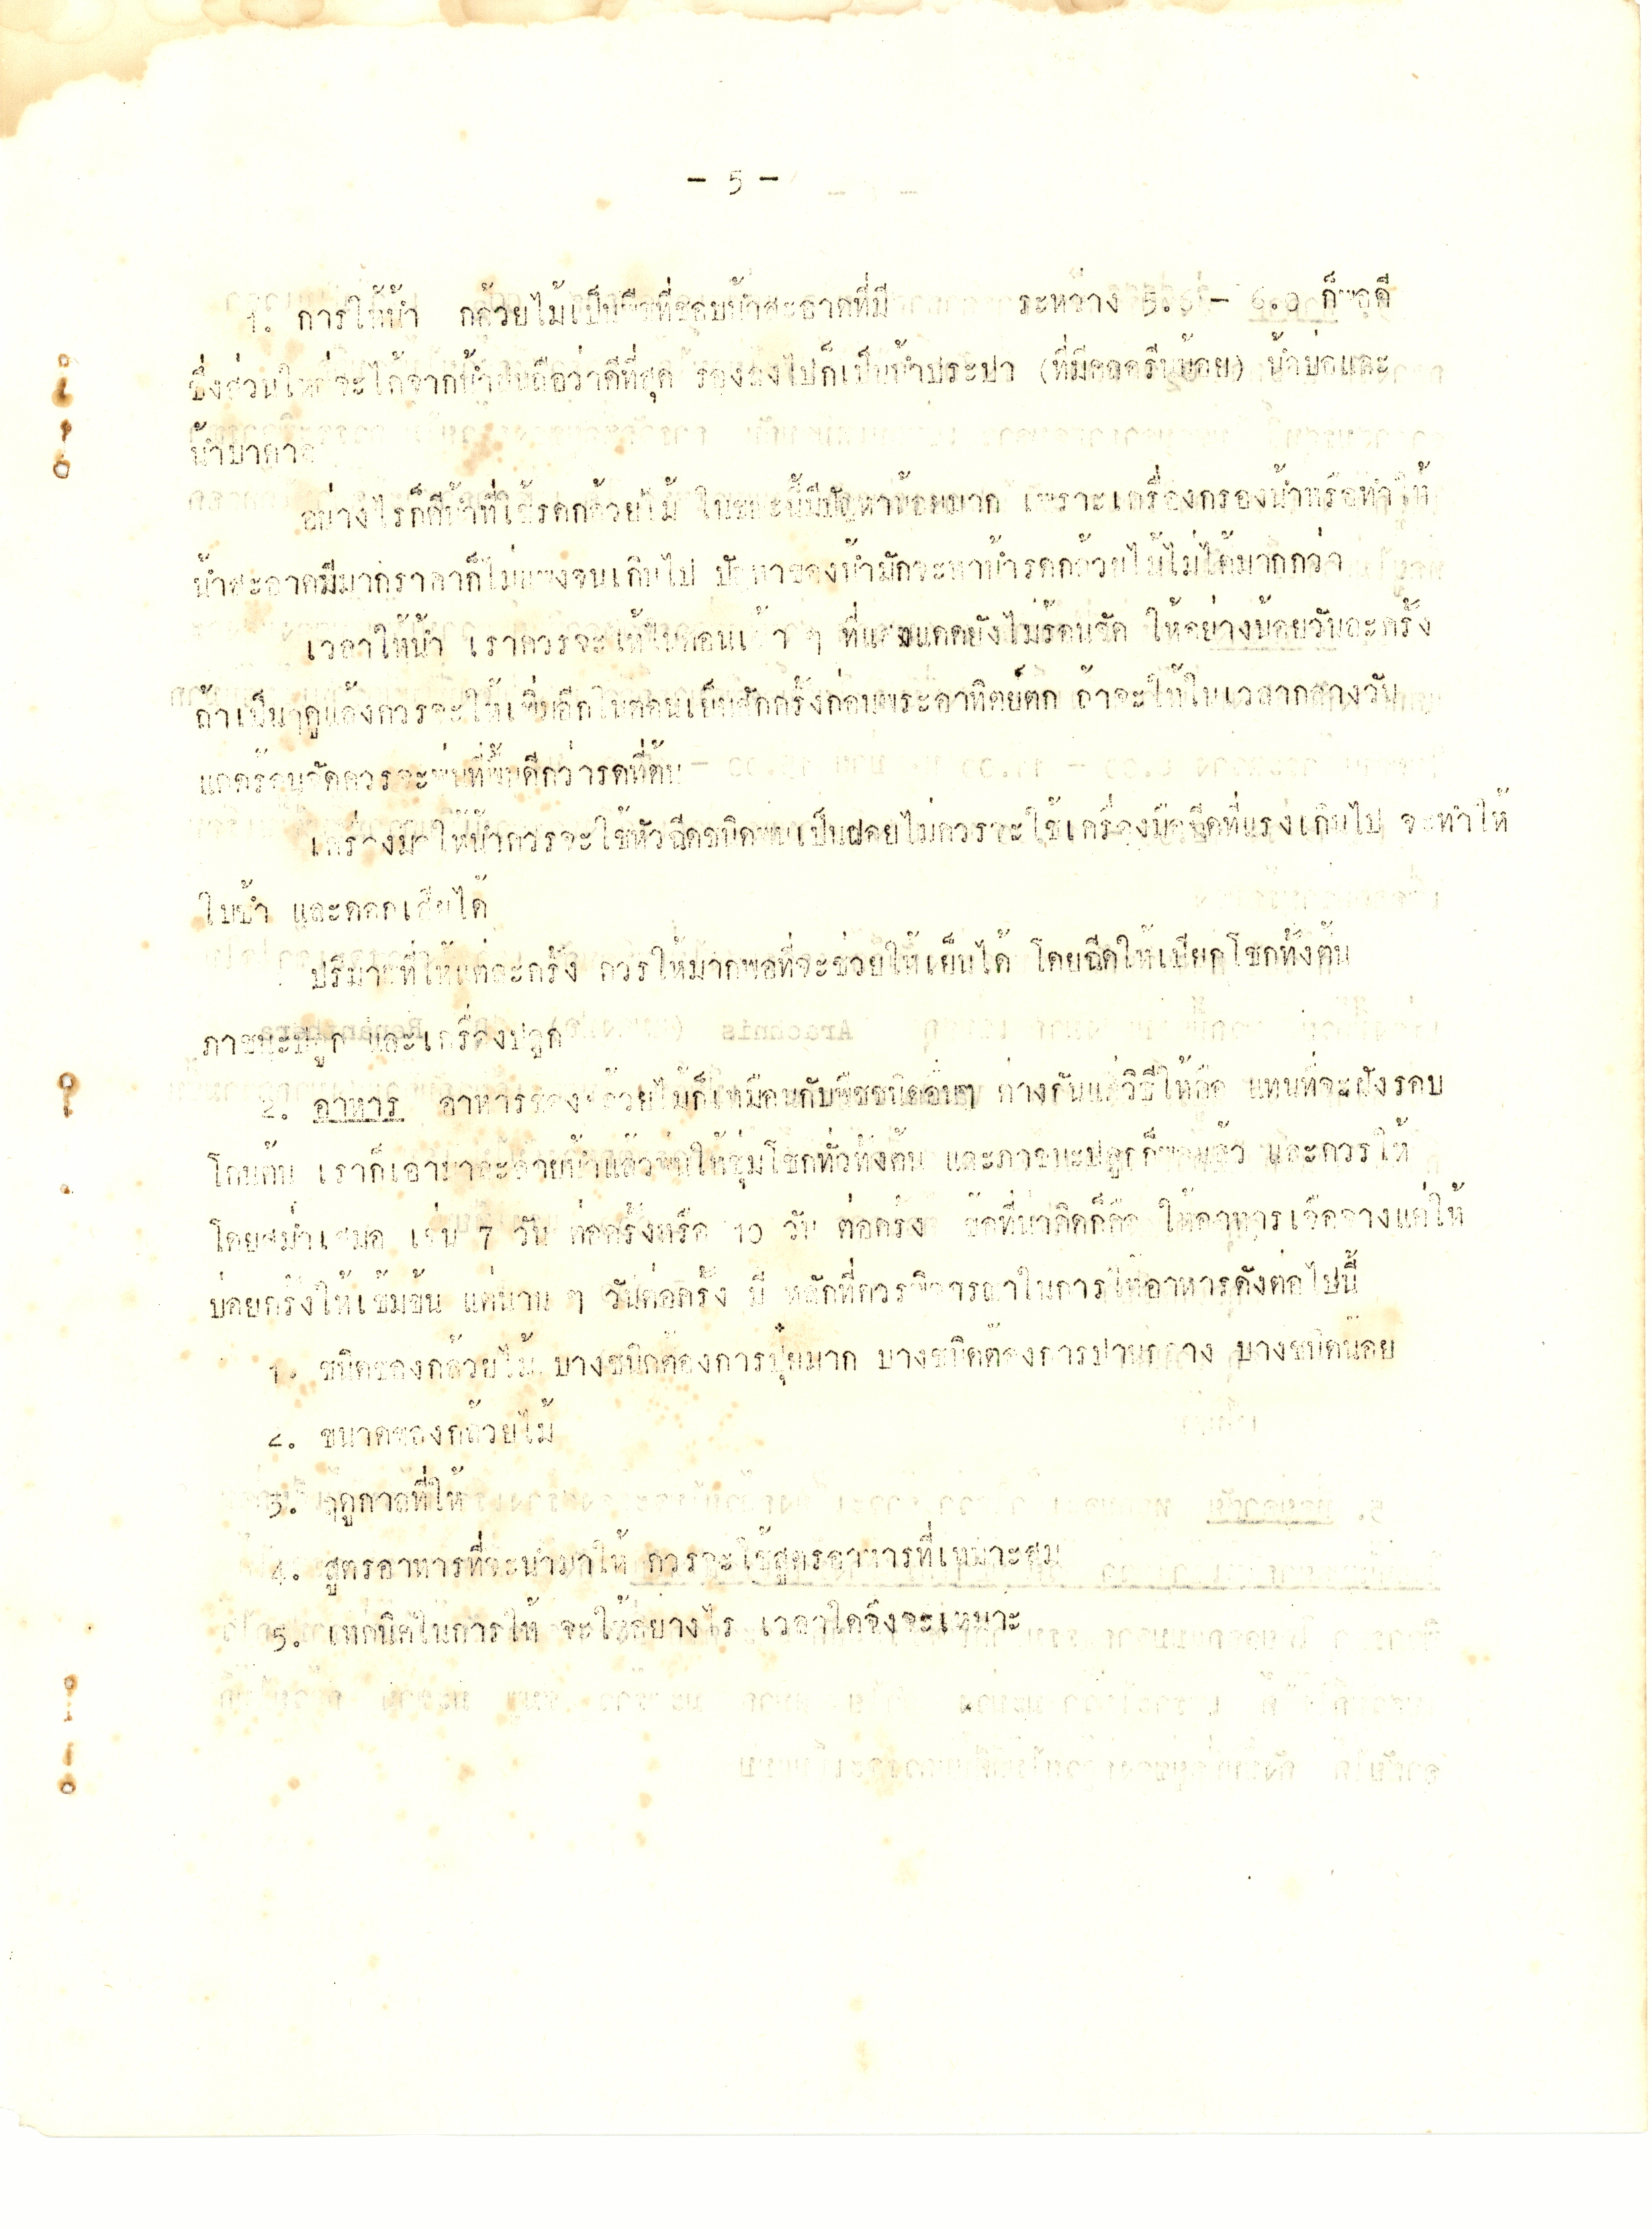 - 5 -
1. การให้น้ำ กล้วยไม้เป็นพืชที่ชอบน้ำสะอาดที่มี ระหว่าง 5.5 - 6.0 ก็พอดี
ซึ่งส่วนใหญ่จะได้จากน้ำฝนถือว่าดีที่สุด รองลงไปก็เป็นน้ำประปา (ที่มีคลอรีนน้อย) น้ำบ่อและ
น้ำบาดาล
อย่างไรก็ดีน้ำที่ใช้รดกล้วยไม้ ในขณะนี้มีปัญหาน้อยมาก เพราะเครื่องกรองน้ำหรือทำให้
น้ำสะอาดมีมากราคาก็ไม่แพงจนเกินไป ปัญหาของน้ำมักจะหาน้ำรดกล้วยไม้ไม่ได้มากกว่า
เวลาให้น้ำ เราควรจะให้ในตอนเช้า ๆ ที่แสงแดดยังไม่ร้อนจัด ให้อย่างน้อยวันละครั้ง
ถ้าเป็นฤดูแล้งควรจะให้เพิ่มอีกในตอนเย็นสักครั้งก่อนพระอาทิตย์ตก ถ้าจะให้ในเวลากลางวัน
แดดร้อนจัดควรจะพ่นที่พื้นดีกว่ารดที่ต้น
เครื่องมือให้น้ำควรจะใช้หัวฉีดชนิดพ่นเป็นฝอยไม่ควรจะใช้เครื่องมือฉีดที่แรงเกินไป จะทำให้
ใบช้ำ และดอกเสียได้
ปริมาณที่ให้แต่ละครั้ง ควรให้มากพอที่จะช่วยให้เย็นได้ โดยฉีดให้เปียกโชกทั้งต้น
ภาชนะปลูก และเครื่องปลูก
2. อาหาร อาหารของกล้วยไม้ก็เหมือนกับพืชชนิดอื่นๆ ต่างกันแต่วิธีให้คือ แทนที่จะฝังรอบ
โคนต้น เราก็เอามาละลายน้ำแล้วพ่นให้ชุ่มโชกทั่วทั้งต้น และภาชนะปลูกก็พอแล้ว และควรให้
โดยสม่ำเสมอ เช่น 7 วัน ต่อครั้งหรือ 10 วัน ต่อครั้ง ข้อที่น่าคิดก็คือ ให้อาหารเจือจางแต่ให้
บ่อยครั้งให้เข้มข้น แต่นาน ๆ วันต่อครั้ง มี หลักที่ควรพิจารณาในการให้อาหารดังต่อไปนี้
1. ชนิดของกล้วยไม้ บางชนิดต้องการปุ๋ยมาก บางชนิดต้องการปานกลาง บางชนิดน้อย
2. ขนาดของกล้วยไม้
3. ฤดูกาลที่ให้
4. สูตรอาหารที่จะนำมาให้ ควรจะใช้สูตรอาหารที่เหมาะสม
5. เทคนิคในการให้ จะให้อย่างไร เวลาใดจึงจะเหมาะ